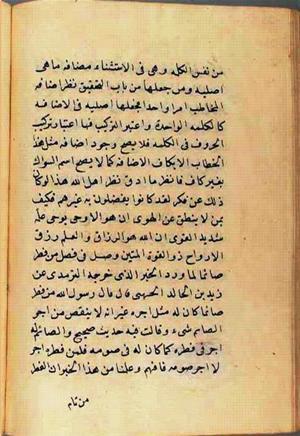 من نفس الكلمه وهى فى الاستثناء مضافه ما هى
اصلية ومن جعلها من باب التحقيق نظر اضافه
المخاطب امرا واحدا فجعلها اصليه فى الاضافه
كالكلمه الواحدة واعتبر التركيب فيها اعتبار تركيب
الحروف فى الكلمه فلا يصح وجود اضافه مثل هذا
الخطاب الا بكاف الاضافه كما لا يصح اسم السواك
بغير كاف فانظر ما ادق نظر اهل الله هذا لو كان
ذلك عن فكر لقد كانوا يفضلون به غيرهم فكيف
بمن لا ينطق عن الهوى ان هو الا وحى يوحى علمه
شديد القوى ان الله هو الرزاق والعلم رزق
الارواح ذو القوة المتين وصل فى فصل من فطر
صائما لما ورد الخبر الذى خرجه الترمذى عن
زيد بن خالد الجهنى قال قال رسول الله من فطر
صائما كان له مثل اجره غير انه لا ينقص من اجر
الصائم شىء وقال فيه حديث صحيح والصائم له
اجر فى فطره كما كان له فى صومه فلمن فطره اجر
لا اجر صومه فافهم وعلمنا من هذا الخبر ان الفطر
من تمام